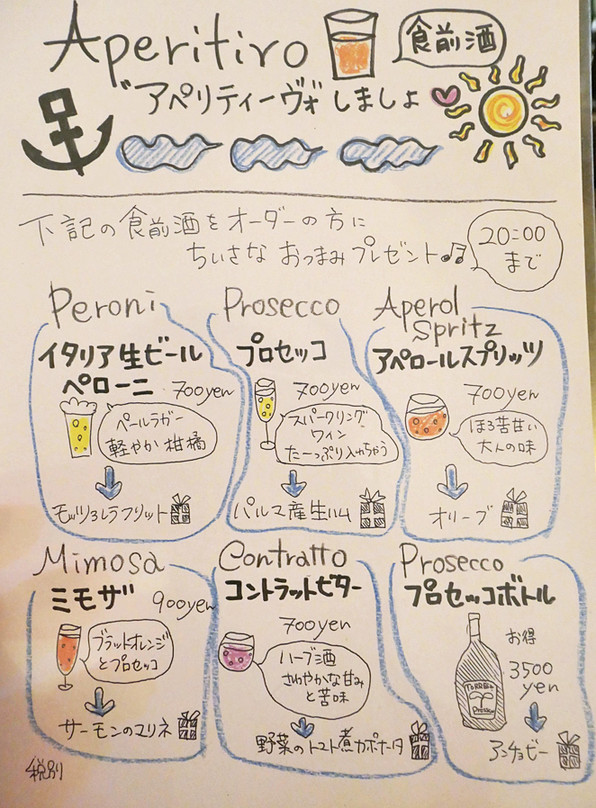 Aperitivo
食前酒
"アペリティーヴォ しましょ
下記の食前酒をオーダーの方に
ちいさな おつまみプレゼント♫
20:00
まで
Peroni
イタリア生ビール
ペローニ
700yen
ペールラガー
軽やか 柑橘
モッツァレラフリット
Prosecco
プロセッコ
700yen
スパークリング
ワイン
たーっぷり入れちゃう
パルマ産生ハム
Aperol
Spritz
アペロールスプリッツ
700yen
ほろ苦甘い
大人の味
オリーブ
Mimosa
ミモザ
900yen
ブラッドオレンジ
とプロセッコ
サーモンのマリネ
Contratto
コントラットビター
700yen
ハーブ酒
さわやかな甘み
と苦味
野菜のトマト煮カポナータ
Prosecco
プロセッコボトル
お得
3500
yen
アンチョビー
税別